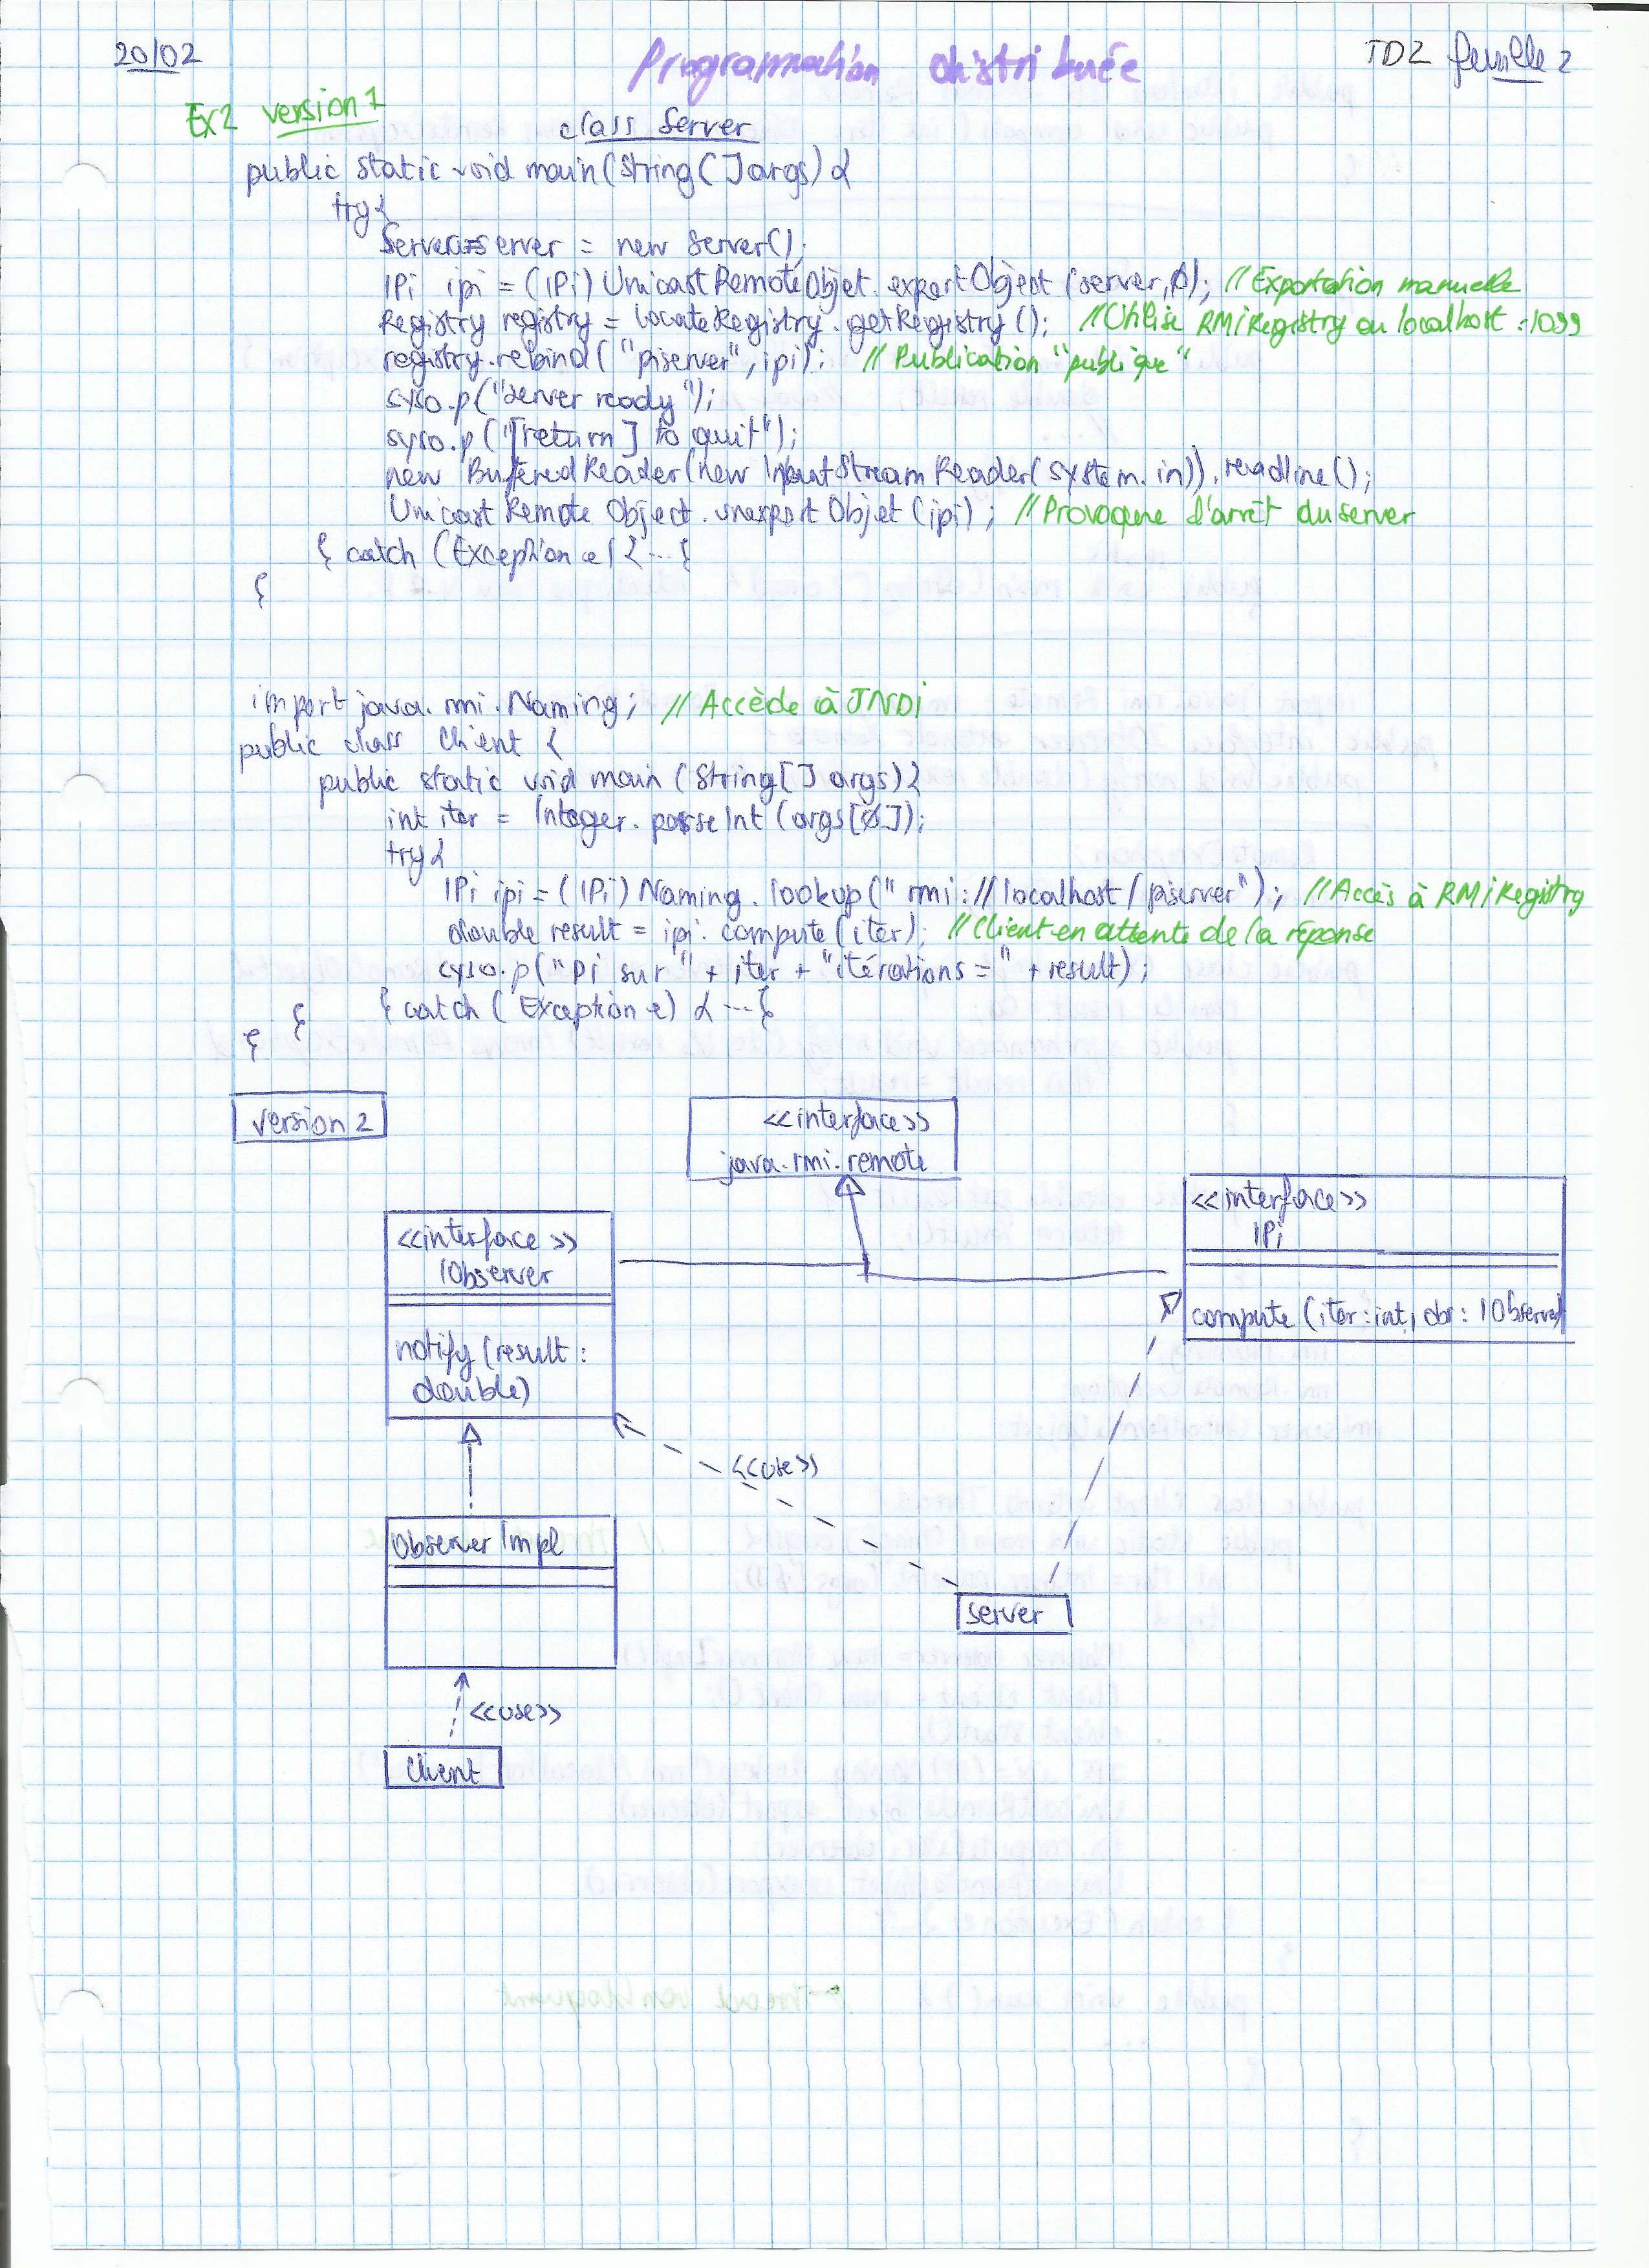 20/02
Programmation distribuée
TD2 feuille 2
Ex2 version 1
class Server
public static void main(String[] args) {
try{
Server server = new Server();
IPi ipi = (IPi) UnicastRemoteObjet.exportObject(server,0); //Exportation manuelle
Registry registry = LocateRegistry.getRegistry(); //Utilise RMIRegistry au localhost:1099
registry.rebind("piserver", ipi); // Publication "publique"
syso.p("server ready");
syso.p("[return] to quit");
new BufferedReader(new InputStreamReader(system.in)).readline();
UnicastRemoteObject.unexportObjet(ipi); //Provoque l'arrêt du server
} catch (Exception e) {...}
}
import java.rmi.Naming; // Accède à JNDI
public class Client {
public static void main (String[] args){
int iter = Integer.parseInt(args[0]);
try{
IPi ipi = (IPi) Naming.lookup("rmi://localhost/piserver"); //Accès à RMIRegistry
double result = ipi.compute(iter); //Client en attente de la réponse
syso.p("pi sur" + iter + "itérations=" + result);
} catch (Exception e) {...}
}
}
version 2
<<interface>>
java.rmi.remote
<<interface>>
IPi
compute (iter:int, obs: IObserver)
<<interface>>
IObserver
notify (result:
double)
<<use>>
Observer Impl
server
<<use>>
Client